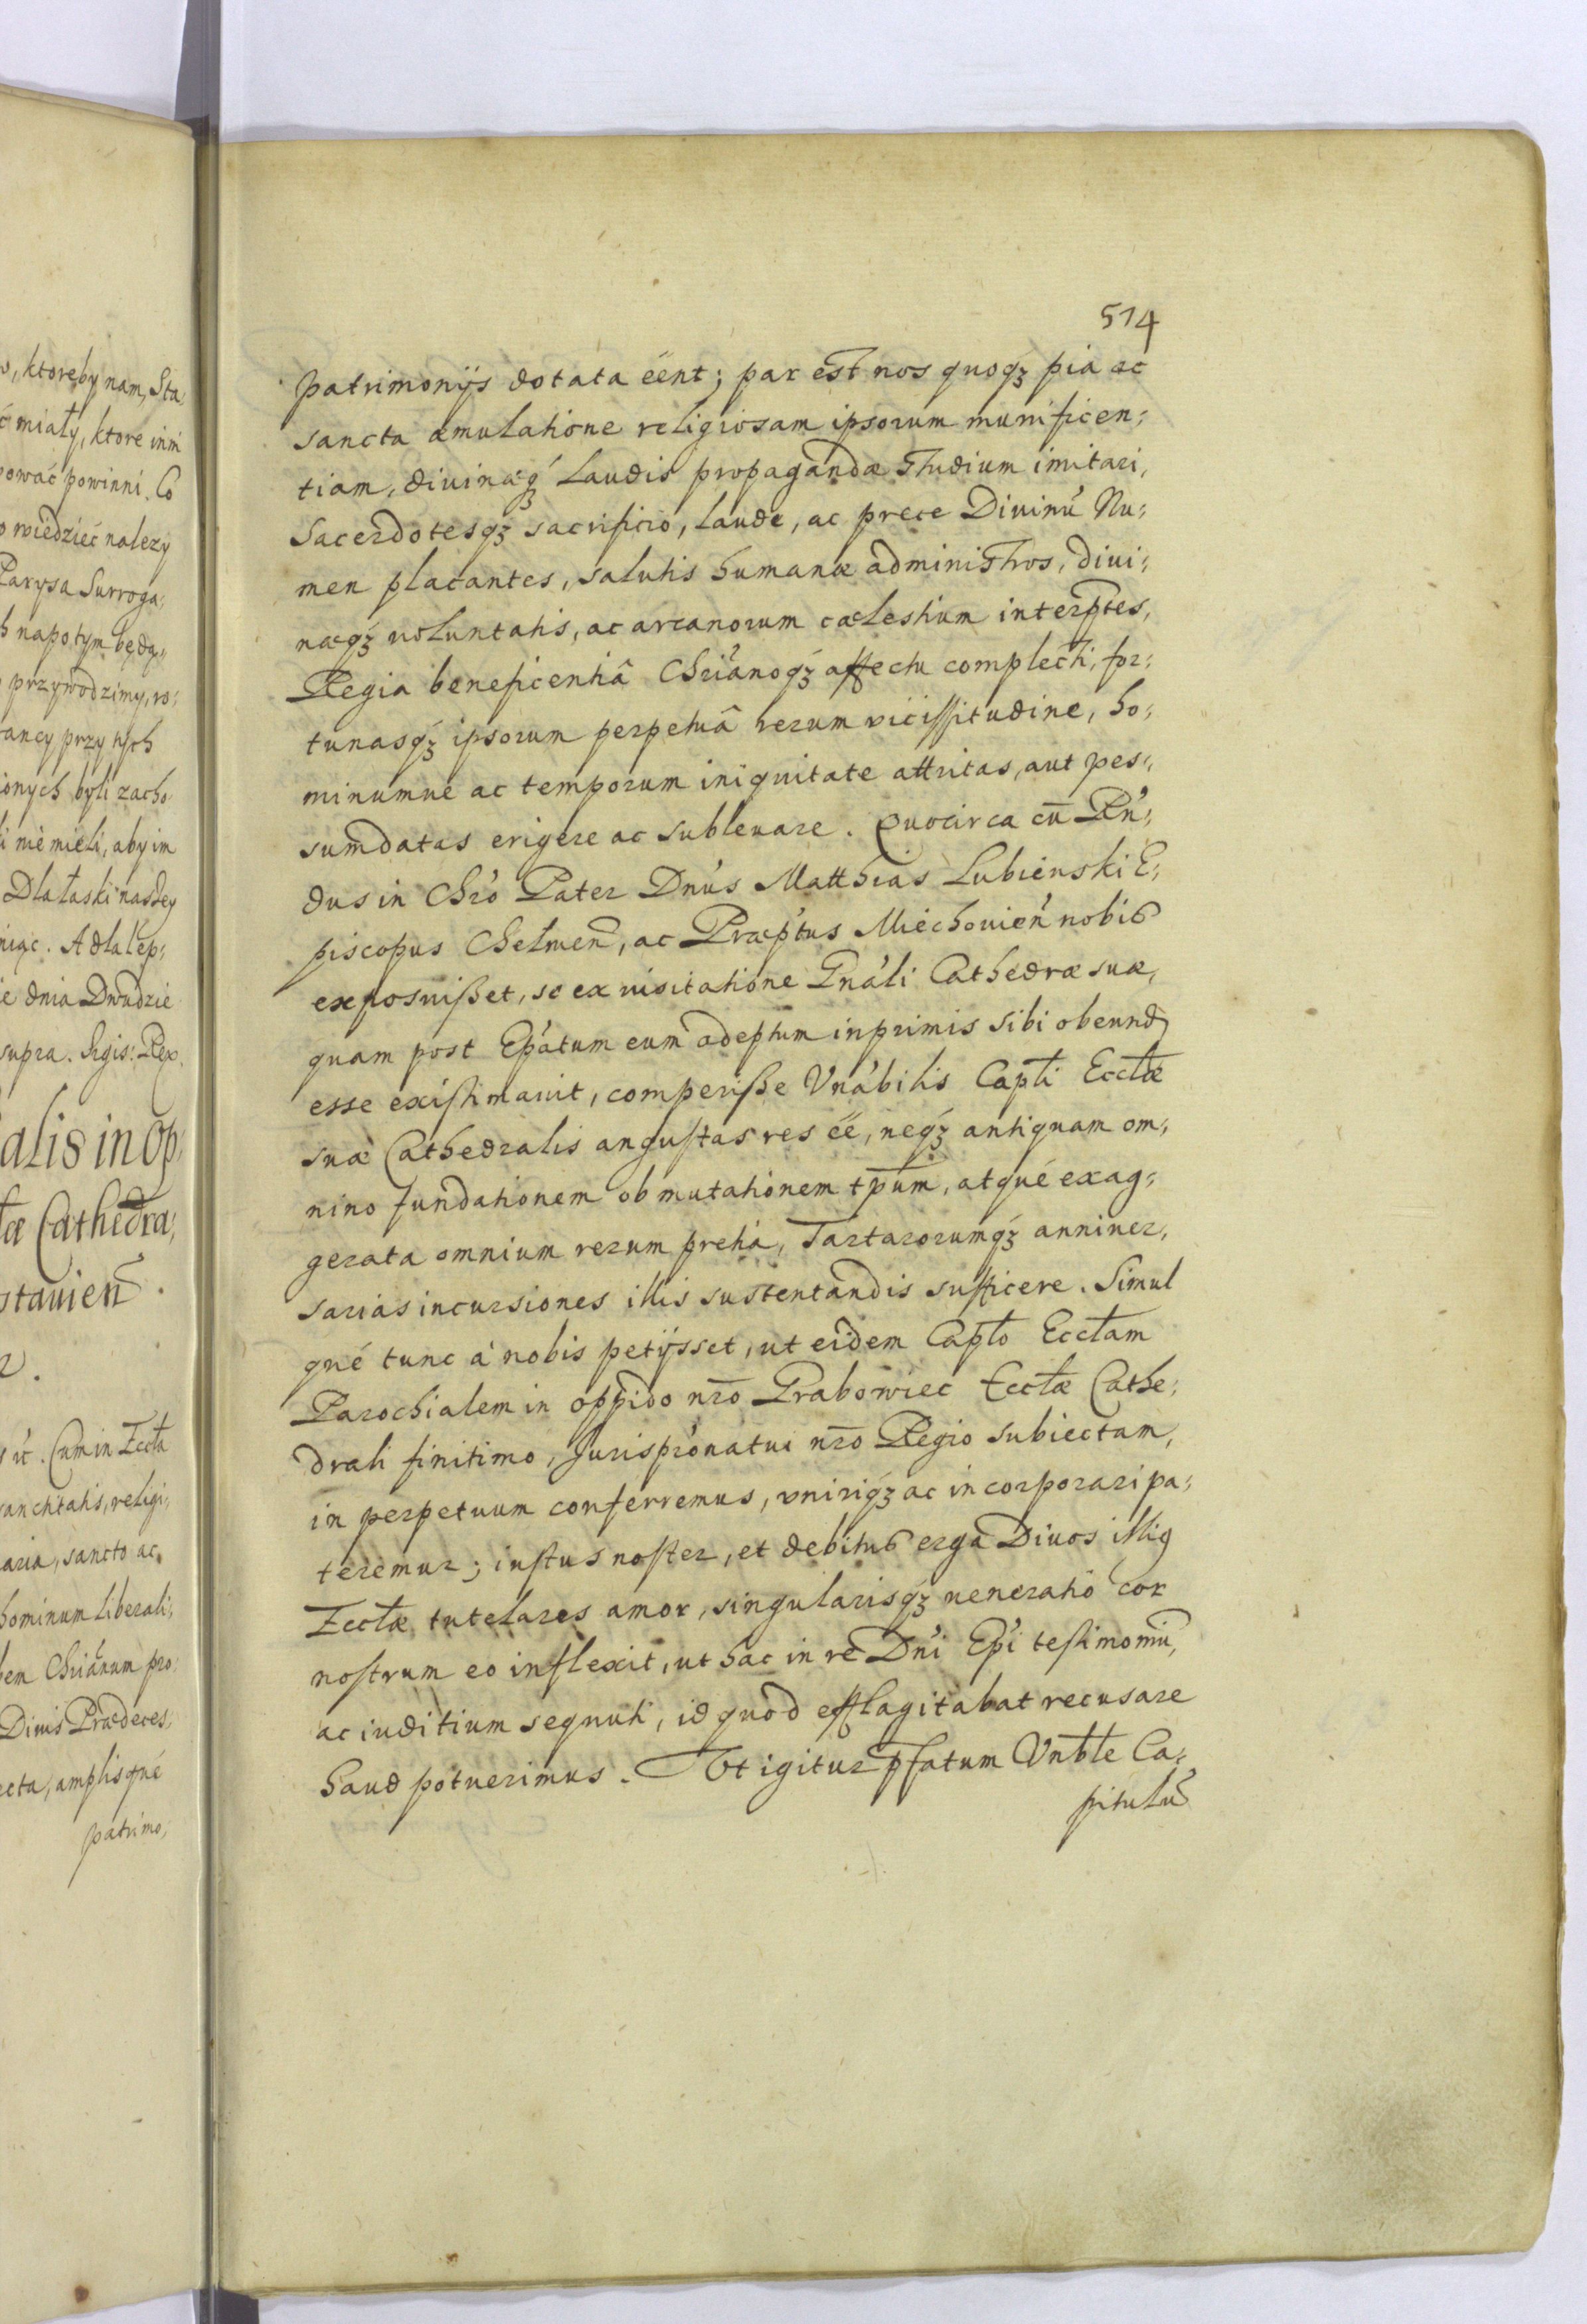 o, ktoreby nam, Sta:
ć miały, ktore inni
pować powinni. Co
o wiedzieć nalezy
Parysa Surroga:
h napotym będą:
przywodzimy, ro:
rancy przy tych
ionych byli zacho
li nie mieli, aby im
Dla łaski naszey
niąc. A dla lep:
ie dnia Dwudzie
supra. Sigis: Rex.
alis in Op:
tæ Cathedra:
stauien.
Cum in Eccła
sanctitatis, religi:
aria, sancto ac
hominum liberali:
bem Chrianum pro
Diuis Prædeces:
recta, amplisqué
patrimo:
514
patrimonijs dotata éént; par est nos quoqꝫ pia ac
sancta æmulatione religiosam ipsorum munificen:
tiam, diuinæqꝫ Laudis propagandæ studium imitari,
Sacerdotesqꝫ sacrificio, laude, ac prece Diuinū Nu:
men placantes, salutis humanæ administros, diui:
næqꝫ uoluntatis, ac arcanorum cælestium interptes,
Regia beneficentiâ Chrianoqꝫ affectu complecti, for:
tunasqꝫ ipsorum perpetuâ rerum vicissitudine, ho:
minumue ac temporum iniquitate attritas, aut pes:
sumdatas erigere ac subleuare. Quocirca cū Rn:
dus in Chro Pater Dnus Matthias Lubienski E:
piscopus Chelmen, ac Præptus Miechouien nobis
exposuißet, se ex uisitatione Gnali Cathedræ suæ,
quam post Epatum eum adeptum inprimis sibi obeund
esse existimauit, comperiße Vnabilis Capłi Eccłæ
suæ Cathedralis angustas res éé, neqꝫ antiquam om:
nino fundationem ob mutationem tpum, atqué exag:
gerata omnium rerum pretia, Tartarorumqꝫ anniuer,
sarias incursiones illis sustentandis sufficere. Simul
qué tunc à nobis petijsset, ut eidem Capło Eccłam
Parochialem in oppido nro Grabowiec Eccłæ Cathe:
drali finitimo, Jurispronatui nro Regio subiectam,
in perpetuum conferremus, vniriqꝫ ac incorporari pa:
teremur; iustus noster, et debitus erga Diuos illiq
Eccłæ tutelares amor, singularisqꝫ ueneratio cor
nostrum eo inflexit, ut hac in re Dni Epi testimoniū,
ac iuditium sequuti, id quod efflagitabat recusare
haud potuerimus. Vt igitur pfatum Vnbłe Ca:
pitulū